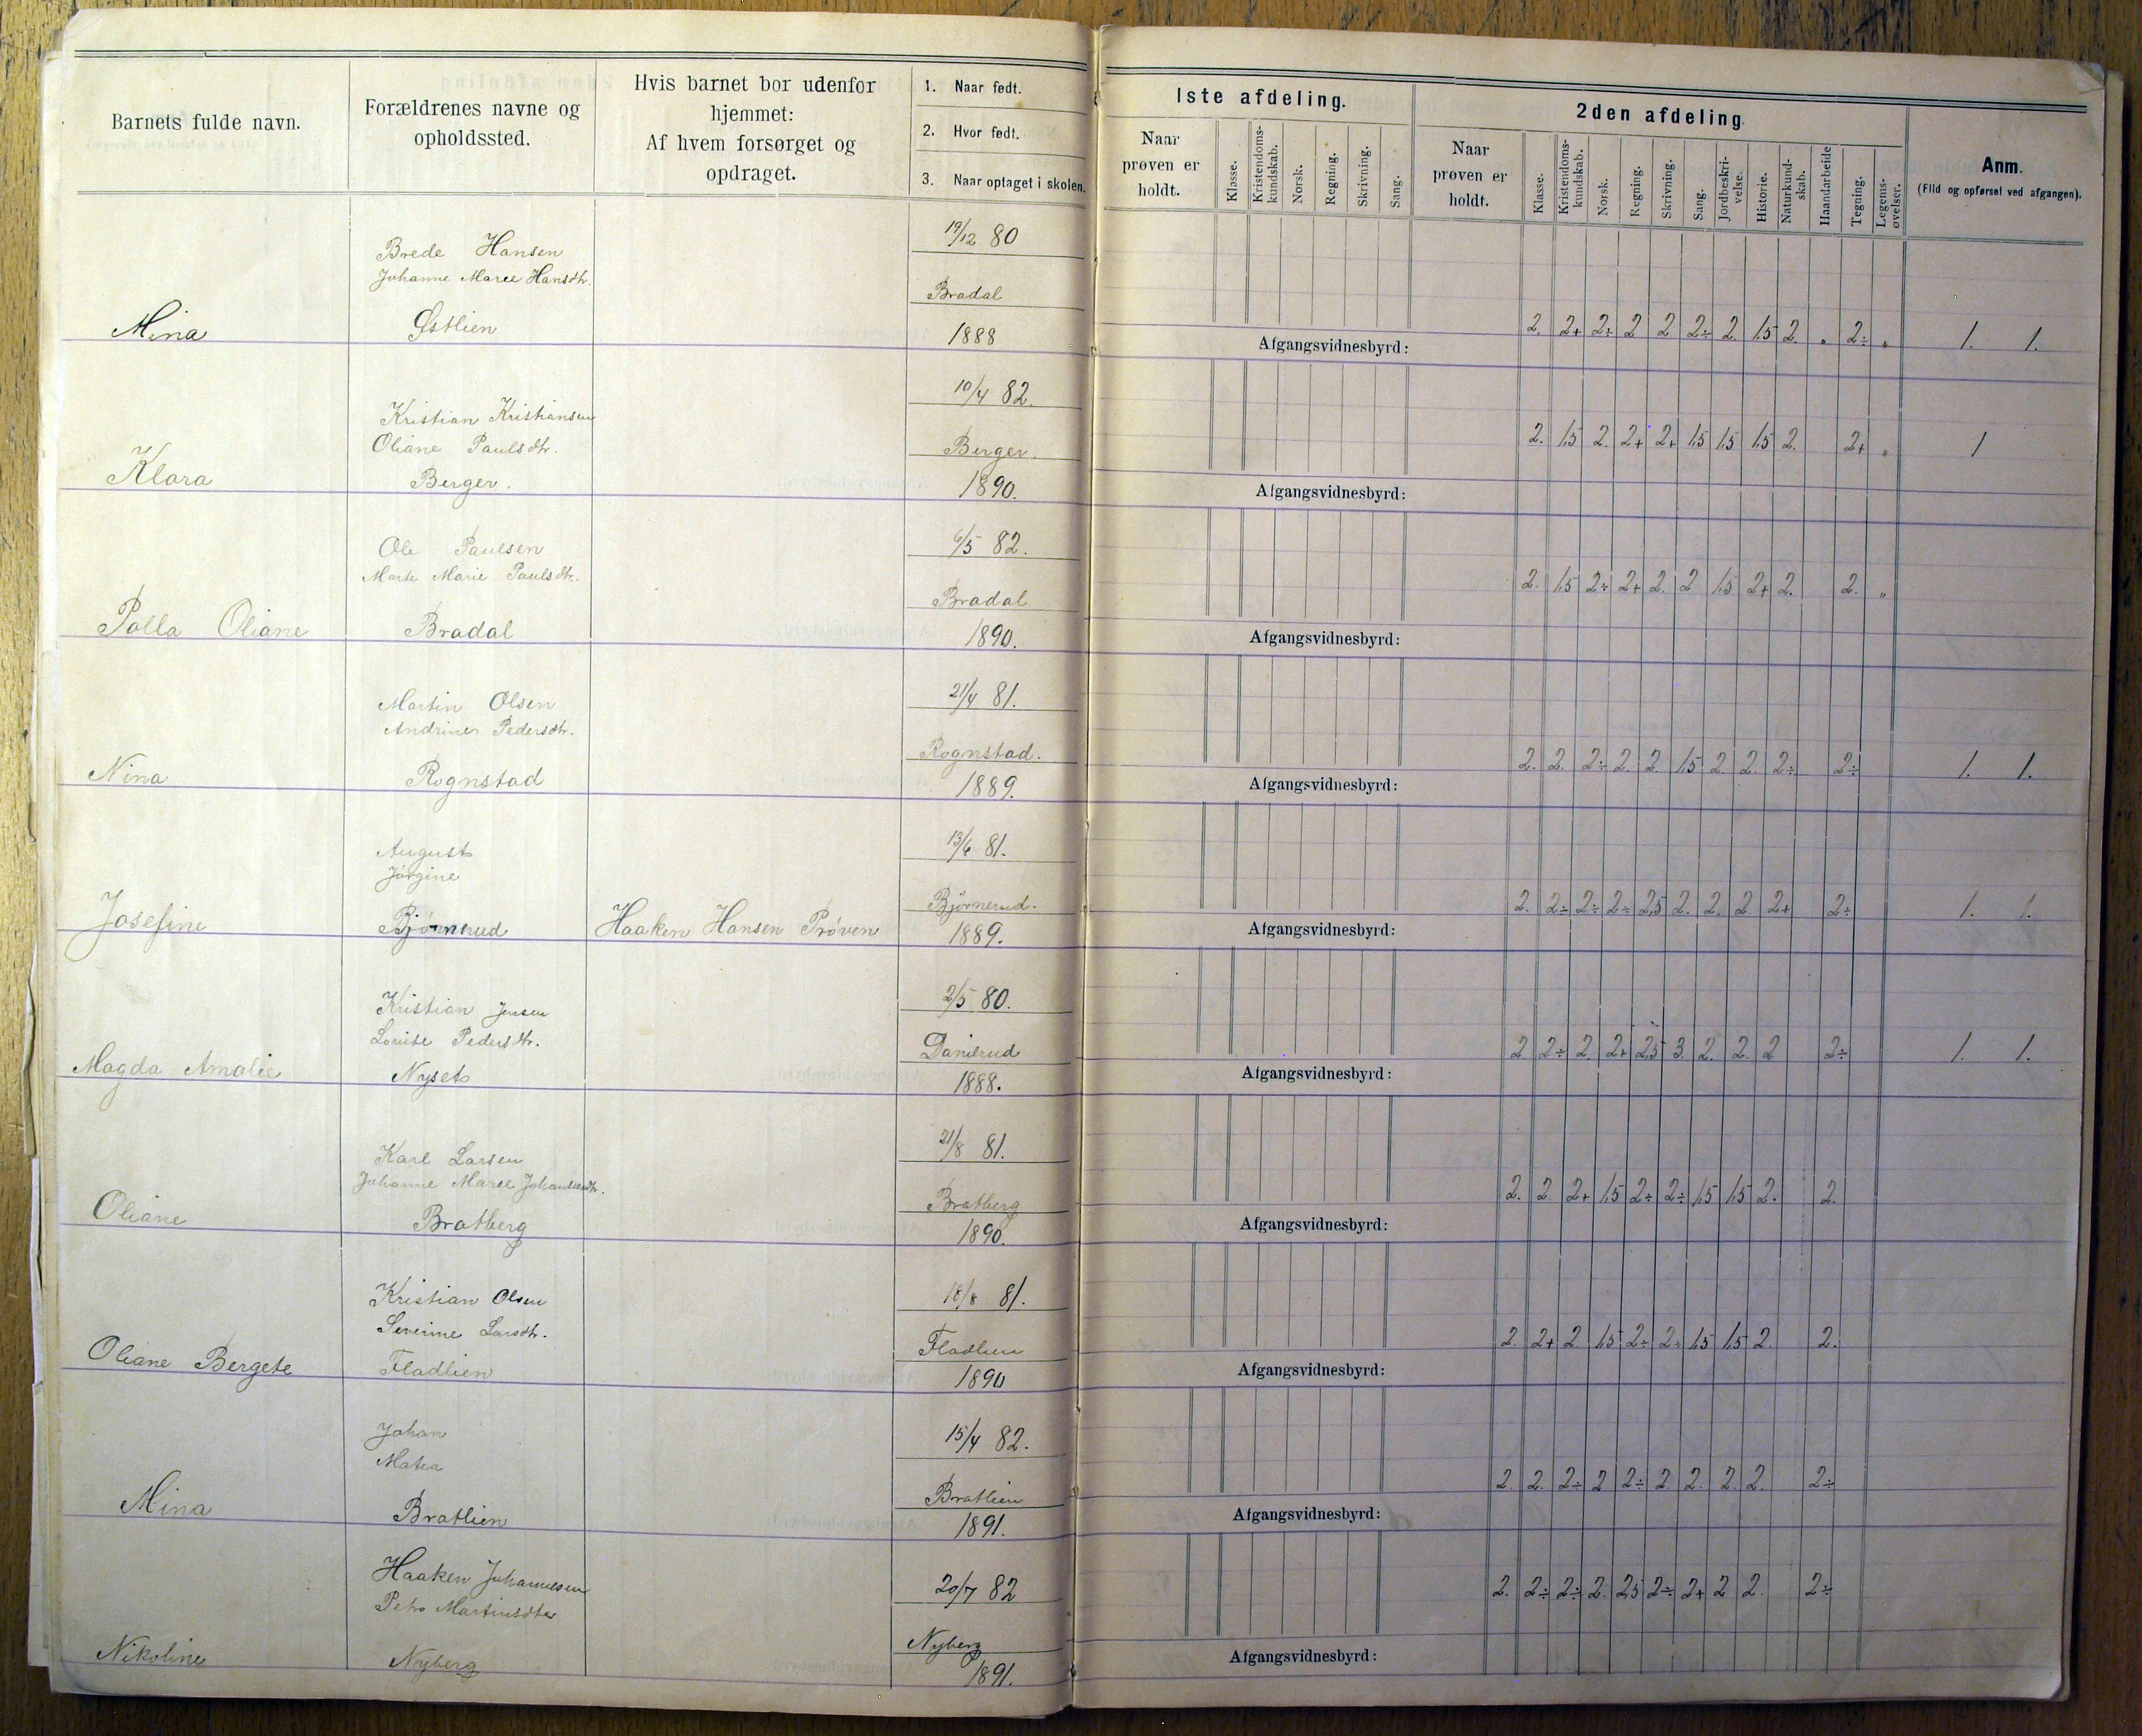 Barnets fulde navn.
Forældrenes navne og
opholdssted.
Hvis barnet bor udenfor
hjemmet:
Af hvem forsørget og
opdraget.
1. Naar født.
2. Hvor født.
3. Naar optaget i skolen.
1ste afdeling.
Naar
prøven er
holdt.
Klasse.
Kristendoms-
kundskab.
Norsk.
Regning.
Skrivning.
Sang.
2den afdeling
Naar
prøven er
holdt.
Klasse.
Kristendoms-
kundskab.
Norsk.
Regning.
Skrivning.
Sang.
Jordbeskri-
velse.
Historie.
Naturkund-
skab.
Haandarbeide
Tegning.
Legems-
øvelser.
Anm.
(Flid og opførsel ved afgangen).
19/12 80
Brede Hansen
Johanne Marie Hansdtr.
Bradal
Mina Østlien 1888
Afgangsvidnesbyrd:
2. 2+ 2÷ 2 2 2÷ 2. 1,5 2. „ 2÷ „ 1. 1.
10/4 82.
Kristian Kristiansen
Oliane Paulsdtr.
Berger.
Klara Berger. 1890.
Afgangsvidnesbyrd:
2. 1,5 2. 2+ 2+ 1,5 1,5 1,5 2. 2+ „ 1
6/5 82.
Ole Paulsen
Marte Marie Paulsdtr.
Bradal
Palla Oliane Bradal 1890.
Afgangsvidnesbyrd:
2. 1,5 2÷ 2+ 2. 2 1,5 2+ 2. 2. „
21/4 81.
Martin Olsen
Andrine Pedersdtr.
Rognstad.
Nina Rognstad 1889.
Afgangsvidnesbyrd:
2. 2. 2÷ 2. 2. 1,5 2. 2. 2÷ 2÷ 1. 1.
13/6 81.
August
Jørgine
Bjørnerud.
Josefine Bjørnerud Haaken Hansen Prøven 1889.
Afgangsvidnesbyrd:
2. 2÷ 2÷ 2÷ 2,5 2. 2. 2 2+ 2÷ 1. 1.
2/5 80.
Kristian Jensen
Louise Pedersdtr.
Danerud
Magda Amalie Nyset 1888.
Afgangsvidnesbyrd:
2 2÷ 2. 2+ 2,5 3. 2. 2. 2 2÷ 1. 1.
21/8 81.
Karl Larsen
Johanne Marie
Bratberg
Oliane Bratberg 1890.
Afgangsvidnesbyrd:
2. 2. 2+ 1,5 2÷ 2÷ 1,5 1,5 2. 2.
18/8 81.
Kristian Olsen
Severine Larsdtr.
Fladlien
Oliane Bergete Fladlien 1890
Afgangsvidnesbyrd:
2. 2+ 2. 1,5 2÷ 2÷ 1,5 1,5 2. 2.
15/4 82.
Johan
Matea
Bratlien
Mina Bratlien 1891.
Afgangsvidnesbyrd:
2. 2. 2÷ 2 2÷ 2. 2. 2. 2. 2÷
20/7 82
Haaken Johannesen
Petra Martinsdtr
Nyberg
Nikoline Nyberg 1891.
Afgangsvidnesbyrd:
2. 2÷ 2÷ 2. 2,5 2÷ 2+ 2 2. 2÷